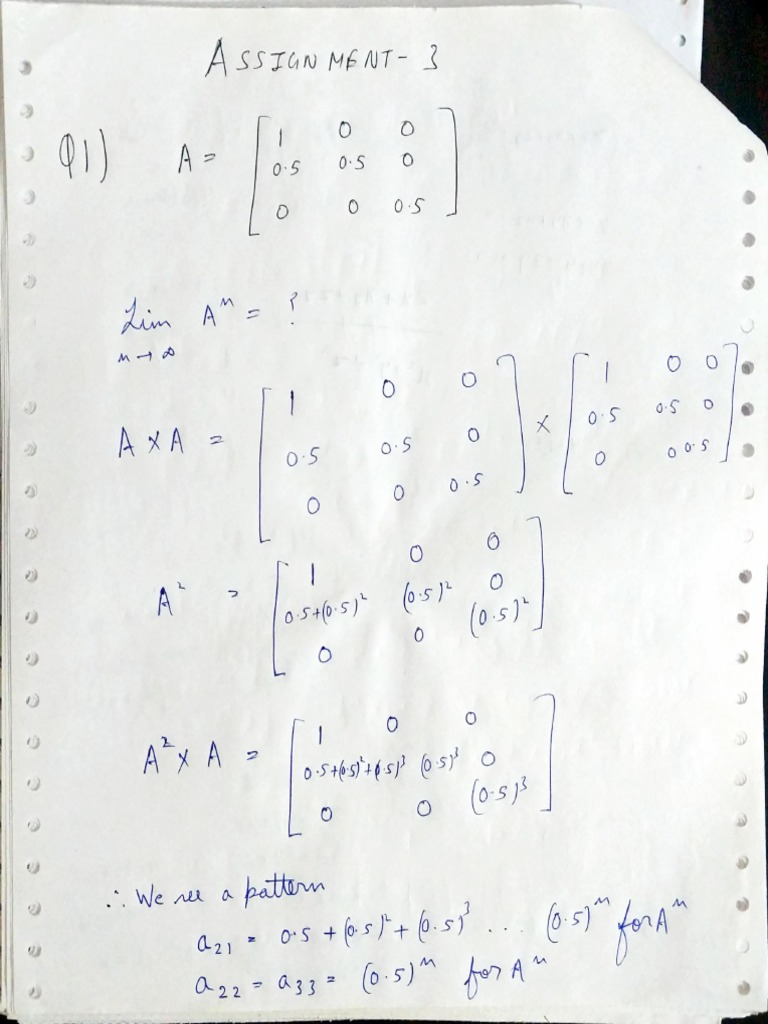 ASSIGNMENT-3
Q1) A = [ 1 0 0
0.5 0.5 0
0 0 0.5 ]
Lim Aⁿ = ?
n→∞
A × A = [ 1 0 0 ; 0.5 0.5 0 ; 0 0 0.5 ] × [ 1 0 0 ; 0.5 0.5 0 ; 0 0 0.5 ]
A² = [ 1 0 0
0.5+(0.5)² (0.5)² 0
0 0 (0.5)² ]
A² × A = [ 1 0 0
0.5+(0.5)²+(0.5)³ (0.5)³ 0
0 0 (0.5)³ ]
∴ We see a pattern
a₂₁ = 0.5 + (0.5)² + (0.5)³ ... (0.5)ⁿ for Aⁿ
a₂₂ = a₃₃ = (0.5)ⁿ for Aⁿ